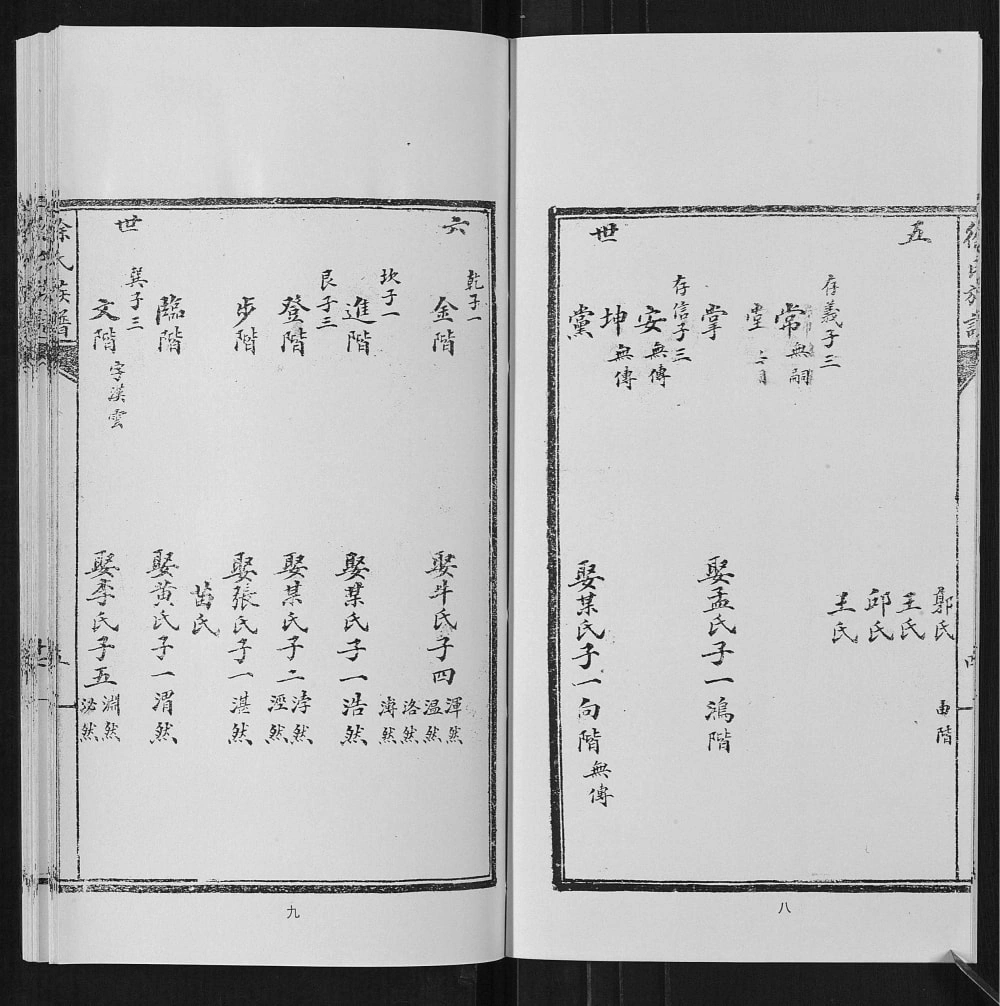 五
世
郭氏
由階
王氏
邱氏
王氏
存義子三
常
無嗣
堂
掌
娶孟氏子一鴻階
存信子三
安
無傳
坤
無傳
黨
娶某氏子一向階
無傳
八
六
世
乾子一
金階
娶牛氏子四
渾然
溫然
洛然
溥然
坎子一
進階
娶某氏子一浩然
艮子三
登階
娶某氏子二
浡然
涇然
步階
娶張氏子一湛然
苗氏
臨階
娶黃氏子一渭然
巽子三
文階
字漢雲
娶李氏子五
淵然
泌然
徐氏族譜
九